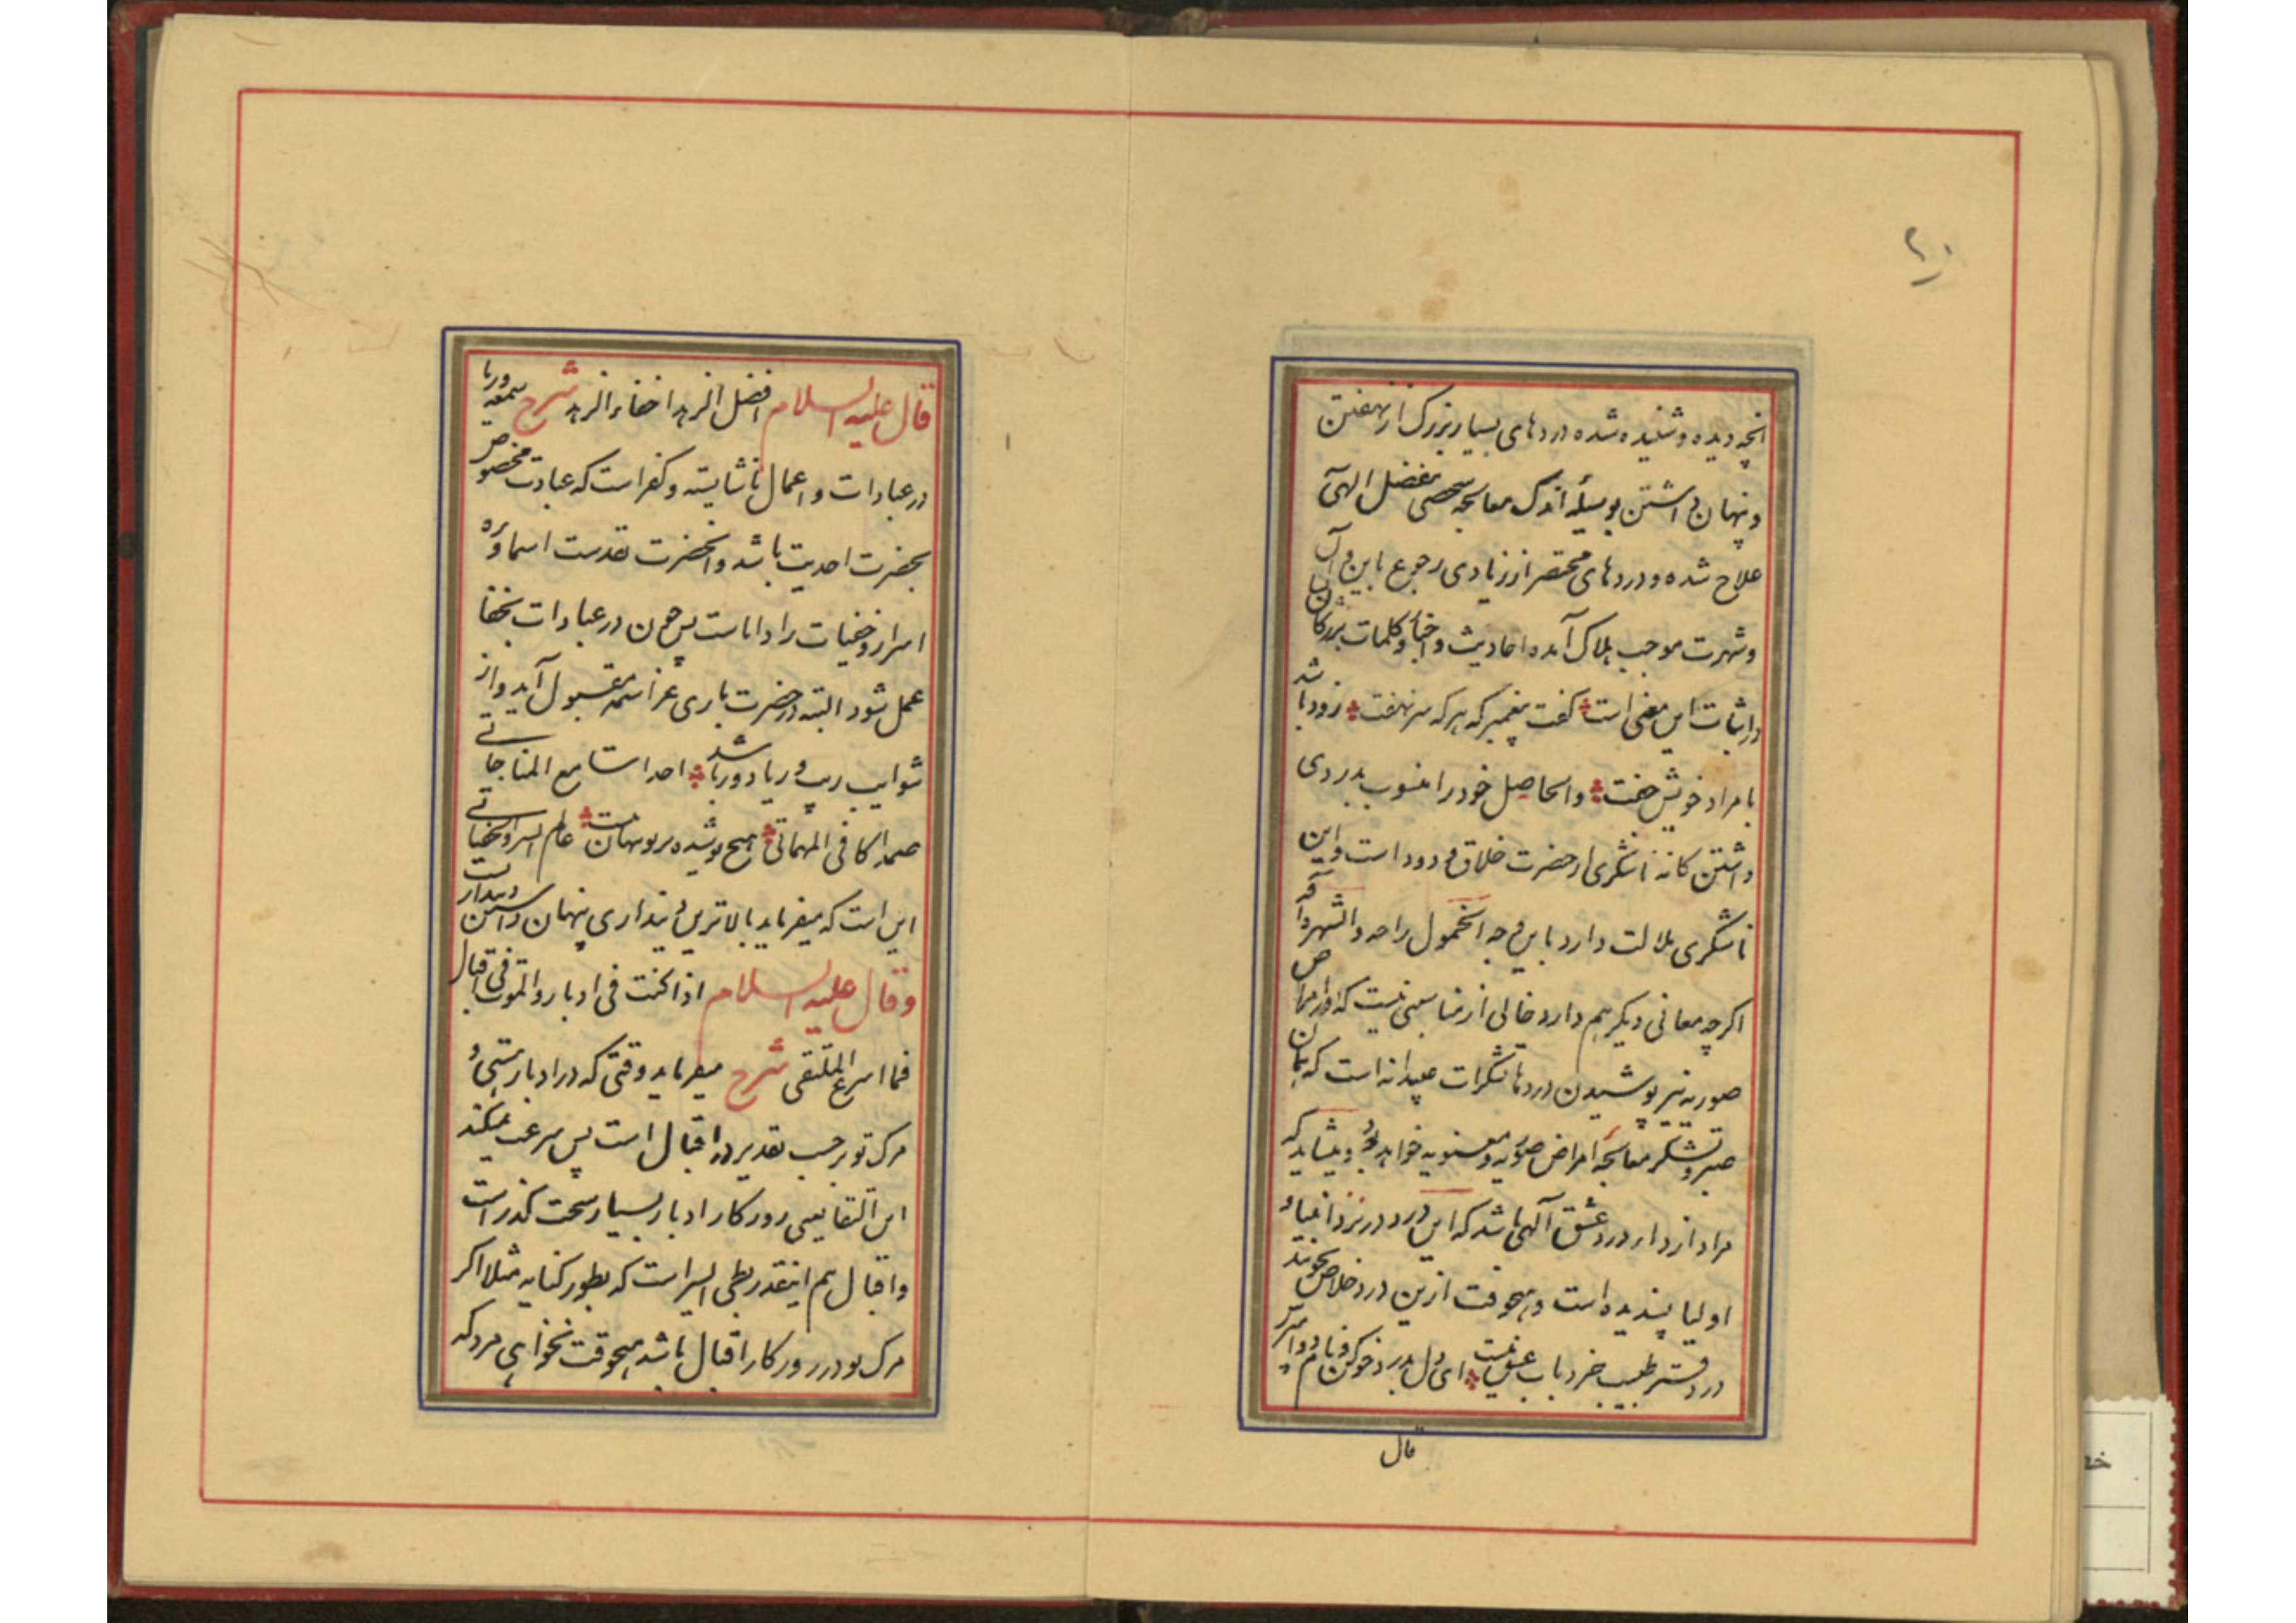 ۲۰
انچه دیده و شنیده شده دردهای بسیار بزرک از نهفتن
و پنهان داشتن بوسیله اندک معالجه صحی بفضل الهی
علاج شده و دردهای مختصر از زیادی رجوع باین و آن
و شهرت موجب هلاک آمده احادیث و اخبار و کلمات بزرکان
در اثبات این معنی است کفت پیغمبر که هر که سر نهفت زود باشد
با مراد خویش جفت والحاصل خود را منسوب بدردی
داشتن کانه ناشکری از حضرت خلاق ودود است و این
ناشکری ملالت دارد باین وجه الخمول راحه والشهره آفه
اکرچه معانی دیکر هم دارد خالی از مناسبتی نیست که در امراض
صوریه نیز پوشیدن دردها تشکرات عبیدانه است که بهمان
صبر و تشکر معالجه امراض صوریه و معنویه خواهد شد و میشاید که
مراد از درد درد عشق آلهی باشد که این درد در نزد انبیاء و
اولیا پسندیده است و هیچوقت ازین درد خلاص نجویند
در دفتر طبیب خرد باب عشق نیست ای دل بدرد خو کن و نام دوا مپرس
قال
قال علیه السلام افضل الزهد اخفاء الزهد شرح سمعه و ریا
در عبادات و اعمال ناشایسته و کفر است که عبادت مخصوص
بحضرت احدیت باشد و آنحضرت تقدست اسماؤه
اسرار و خفیات را داناست پس چون در عبادات بخفا
عمل شود البته در حضرت باری عز اسمه مقبول آید و از
شوایب ریب و ریا دور باشد احدا سامع المناجاتی
صمدا کافی المهماتی هیچ پوشیده بر تو پنهان نیست عالم السر و الخفیاتی
این است که میفرماید بالاترین دینداری پنهان داشتن دینداریست
وقال علیه السلام اذا کنت فی ادبار والموت فی اقبال
فما اسرع الملتقی شرح میفرماید وقتی که در ادبار هستی و
مرک تو بر حسب تقدیر در اقبال است پس سرعت میکند
این التقا یعنی روزکار ادبار بسیار سخت کذر است
و اقبال هم اینقدر بطی السیر است که بطور کنایه مثلا اکر
مرک تو در روزکار اقبال باشد هیچوقت نخواهی مرد که